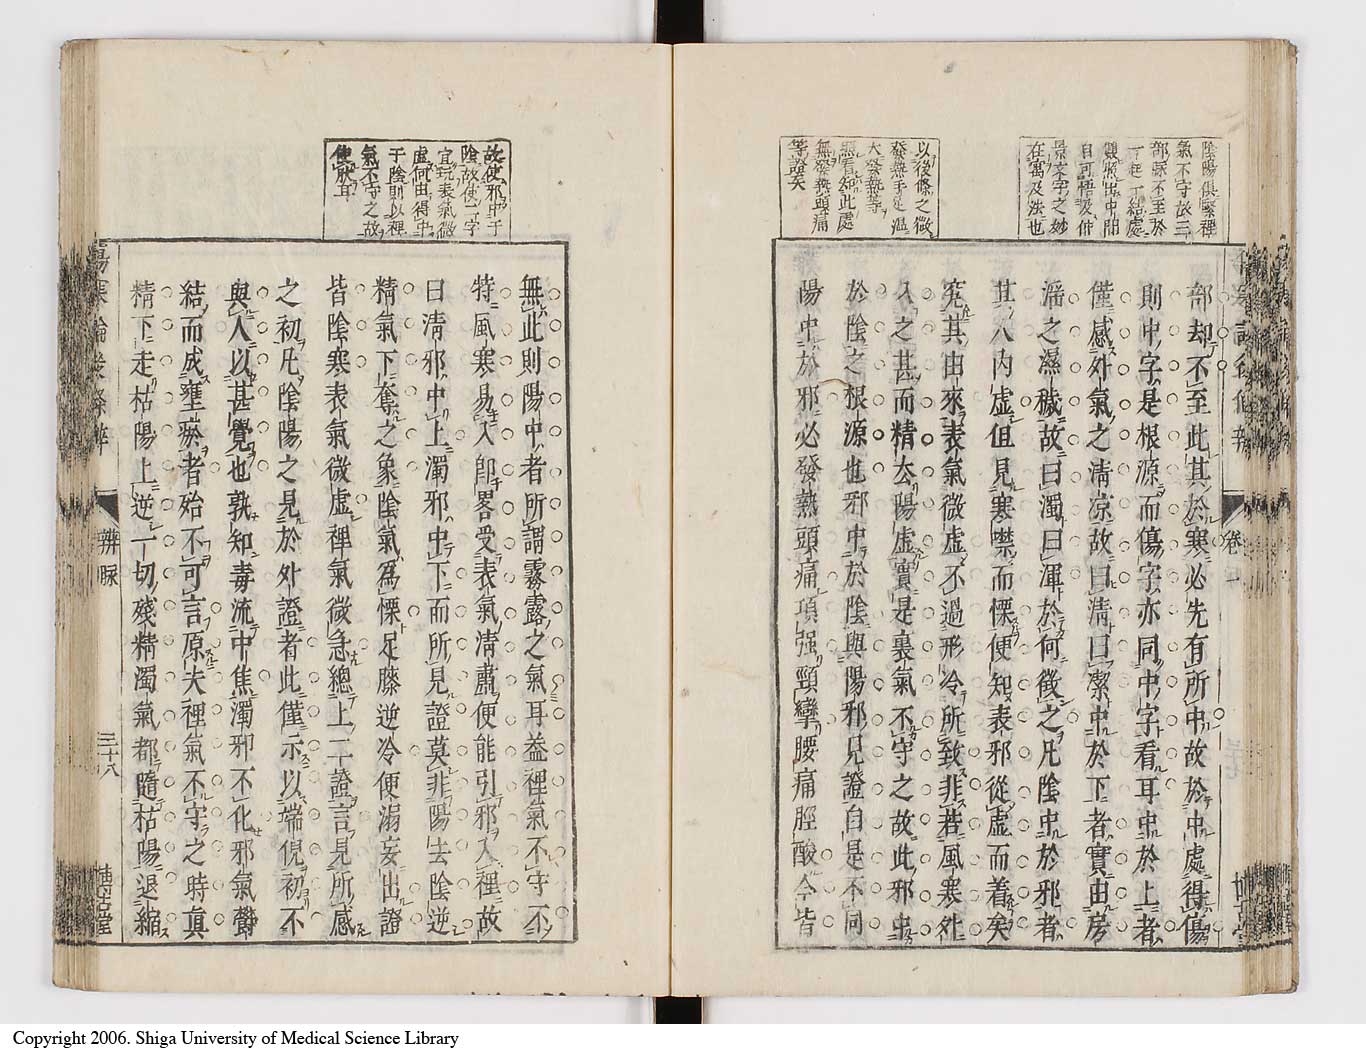 陰陽俱緊裡
氣不守故三
部脉不至於
在寓及法也
以後條之徵
發熱手足溫
大發熱等
照看知此處
無發熱頭痛
等證矣
部却不至此其於寒必先有所中故於中處得傷
則中字是根源而傷字亦同中字看耳中於上者
僅感外氣之清凉故曰清曰潔中於下者實由房
滛之濕穢故曰濁曰渾於何徵之凡陰中於邪者
其人内虛但見寒噤而慄便知表邪從虛而着矣
究其由來表氣微虛不過形冷所致非若風寒外
入之甚而精太陽虛實是裏氣不守之故此邪中
於陰之根源也邪中於陰與陽邪見證自是不同
陽中於邪必發熱頭痛項强頸攣腰痛脛酸今皆
卷一
故使邪中于
陰故使二字
宜玩表氣微
虛何由得中
于陰則以裡
氣不守之故
使然耳
無此則陽中者所謂霧露之氣耳益裡氣不守不
特風寒易入卽畧受表氣淸肅便能引邪入裡故
曰淸邪中上濁邪中下而所見證莫非陽去陰逆
精氣下奪之象陰氣爲慄足膝逆冷便溺妄出證
皆陰寒表氣微虛裡氣微急總上二證言見所感
之初凡陰陽之見於外證者此僅示以端倪初不
與人以甚覺也孰知毒流中焦濁邪不化邪氣鬱
結而成壅瘀者始不可言原夫裡氣不守之時眞
精下走枯陽上逆一切殘精濁氣都隨枯陽退縮
傷寒論後條辨
辨脈
三十八
Copyright 2006. Shiga University of Medical Science Library